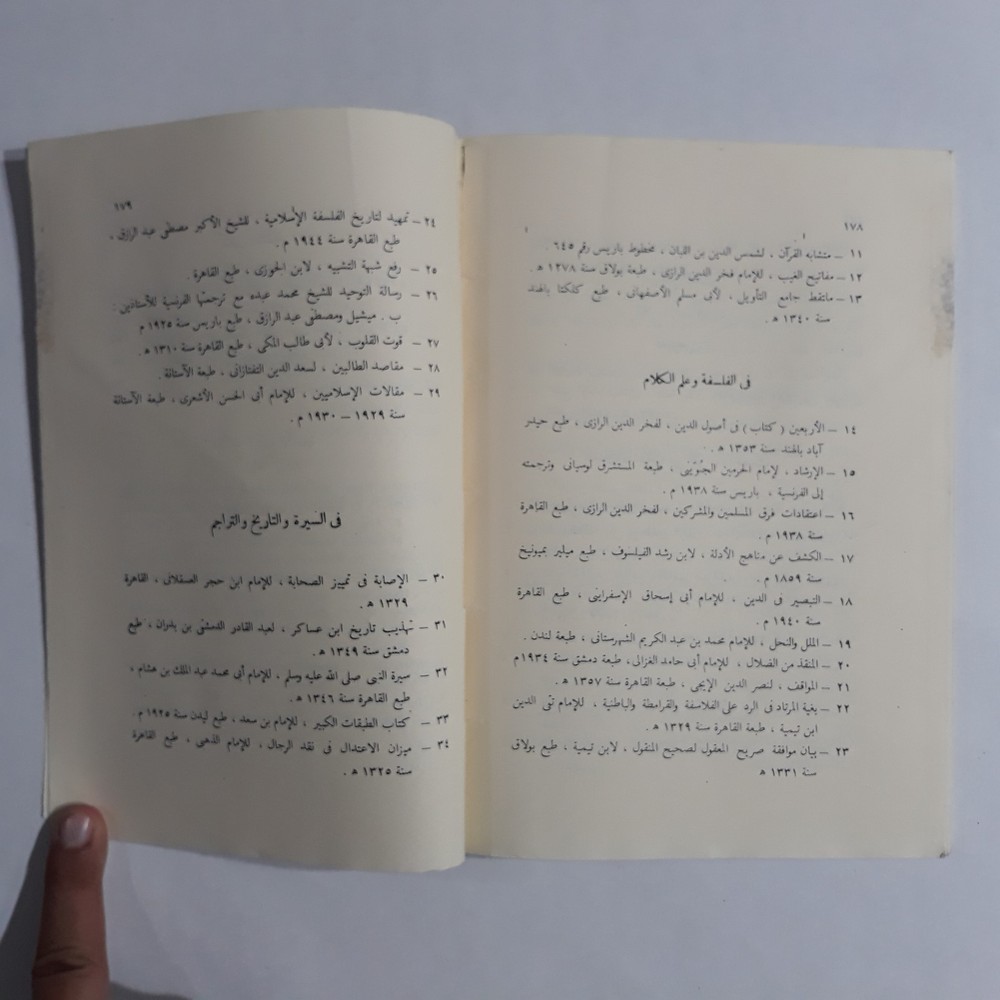 ١٧٨
١١ – متشابه القرآن ، لشمس الدين بن اللبان ، مخطوط باريس رقم ٦٤٥ .
١٢ – مفاتيح الغيب ، للإمام فخر الدين الرازى ، طبعة بولاق سنة ١٢٧٨ ه .
١٣ – ملتقط جامع التأويل ، لأبى مسلم الأصفهانى ، طبع كلكتا بالهند
سنة ١٣٤٠ ه .
فى الفلسفة وعلم الكلام
١٤ – الأربعين ( كتاب ) فى أصول الدين ، لفخر الدين الرازى ، طبع حيدر
آباد بالهند سنة ١٣٥٣ ه .
١٥ – الإرشاد ، لإمام الحرمين الجُوَيْنى ، طبعة المستشرق لوسيانى وترجمته
إلى الفرنسية ، باريس سنة ١٩٣٨ م .
١٦ – اعتقادات فرق المسلمين والمشركين ، لفخر الدين الرازى ، طبع القاهرة
سنة ١٩٣٨ م .
١٧ – الكشف عن مناهج الأدلة ، لابن رشد الفيلسوف ، طبع ميلير بميونيخ
سنة ١٨٥٩ م .
١٨ – التبصير فى الدين ، للإمام أبى إسحاق الإسفراينى ، طبع القاهرة
سنة ١٩٤٠ م .
١٩ – الملل والنحل ، للإمام محمد بن عبد الكريم الشهرستانى ، طبعة لندن .
٢٠ – المنقذ من الضلال ، للإمام أبى حامد الغزالى، طبعة دمشق سنة ١٩٣٤م
٢١ – المواقف ، لنصر الدين الإيجى ، طبعة القاهرة سنة ١٣٥٧ ه .
٢٢ – بغية المرتاد فى الرد على الفلاسفة والقرامطة والباطنية ، للإمام تقى الدين
ابن تيمية ، طبعة القاهرة سنة ١٣٢٩ ه .
٢٣ – بيان موافقة صريح المعقول لصحيح المنقول ، لابن تيمية ، طبع بولاق
سنة ١٣٣١ ه
١٧٩
٢٤ – تمهيد لتاريخ الفلسفة الإسلامية ، للشيخ الأكبر مصطفى عبد الرازق ،
طبع القاهرة سنة ١٩٤٤ م .
٢٥ – رفع شبهة التشبيه ، لابن الجوزى ، طبع القاهرة .
٢٦ – رسالة التوحيد للشيخ محمد عبده مع ترجمتها الفرنسية للأستاذين :
ب . ميشيل ومصطفى عبد الرازق ، طبع باريس سنة ١٩٢٥ م
٢٧ – قوت القلوب ، لأبى طالب المكى ، طبع القاهرة سنة ١٣١٠ ه .
٢٨ – مقاصد الطالبين ، لسعد الدين التفتازانى ، طبعة الآستانة .
٢٩ – مقالات الإسلاميين ، للإمام أبى الحسن الأشعرى ، طبعة الآستانة
سنة ١٩٢٩ – ١٩٣٠ م .
فى السيرة والتاريخ والتراجم
٣٠ – الإصابة فى تمييز الصحابة ، للإمام ابن حجر العسقلانى ، القاهرة
١٣٢٩ ه .
٣١ – تهذيب تاريخ ابن عساكر ، لعبد القادر الدمشقى بن بدران ، طبع
دمشق سنة ١٣٤٩ ه .
٣٢ – سيرة النبى صلى الله عليه وسلم ، للإمام أبى محمد عبد الملك بن هشام ،
طبع القاهرة سنة ١٣٤٦ ه .
٣٣ – كتاب الطبقات الكبير ، للإمام بن سعد ، طبع ليدن سنة ١٩٢٥ م .
٣٤ – ميزان الاعتدال فى نقد الرجال ، للإمام الذهبى ، طبع القاهرة
سنة ١٣٢٥ ه .